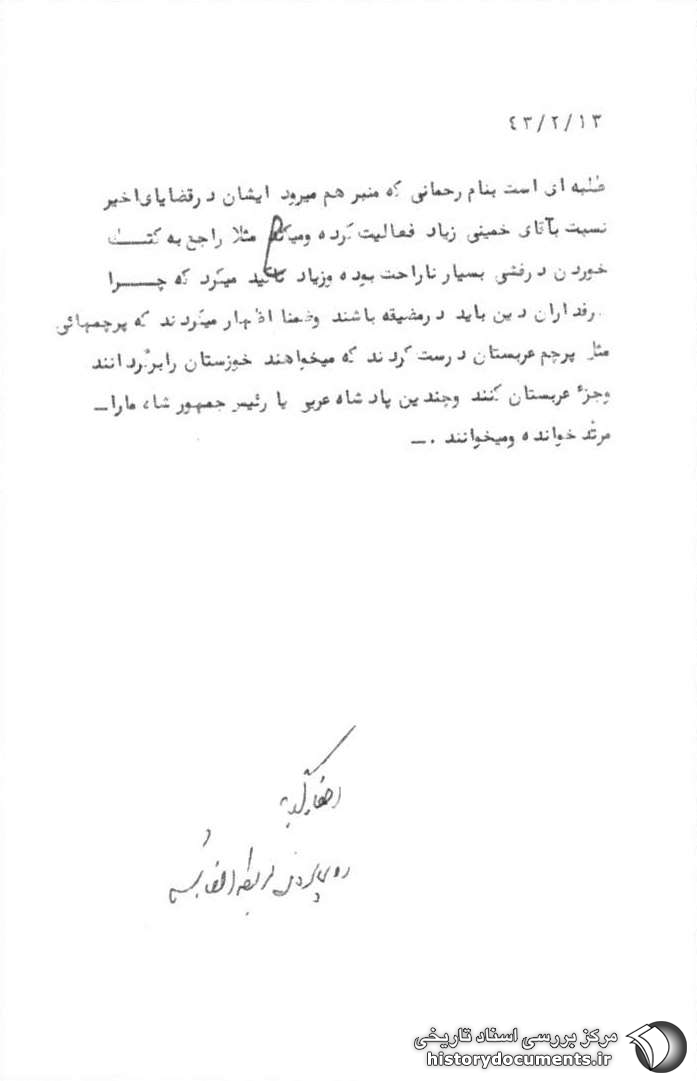 ۴۳/۲/۱۳
طلبه ای است بنام رحمانی که منبر هم میرود ایشان در قضایای اخیر
نسبت بآقای خمینی زیاد فعالیت کرده ومیکند مثلا راجع به کتک
خوردن در فشی بسیار ناراحت بوده وزیاد تاکید میکرد که چرا
رفداران دین باید در مضیقه باشند وضمنا اظهار میکردند که پرچمهائی
مثل پرچم عربستان درست کردند که میخواهند خوزستان رابرگردانند
وجزء عربستان کنند وچندین پادشاه عربی یا رئیس جمهور شاه مارا ـ
مرتد خوانده ومیخوانند . ـ
روی پرونده مربوطه
مرکز بررسی اسناد تاریخی
historydocuments.ir